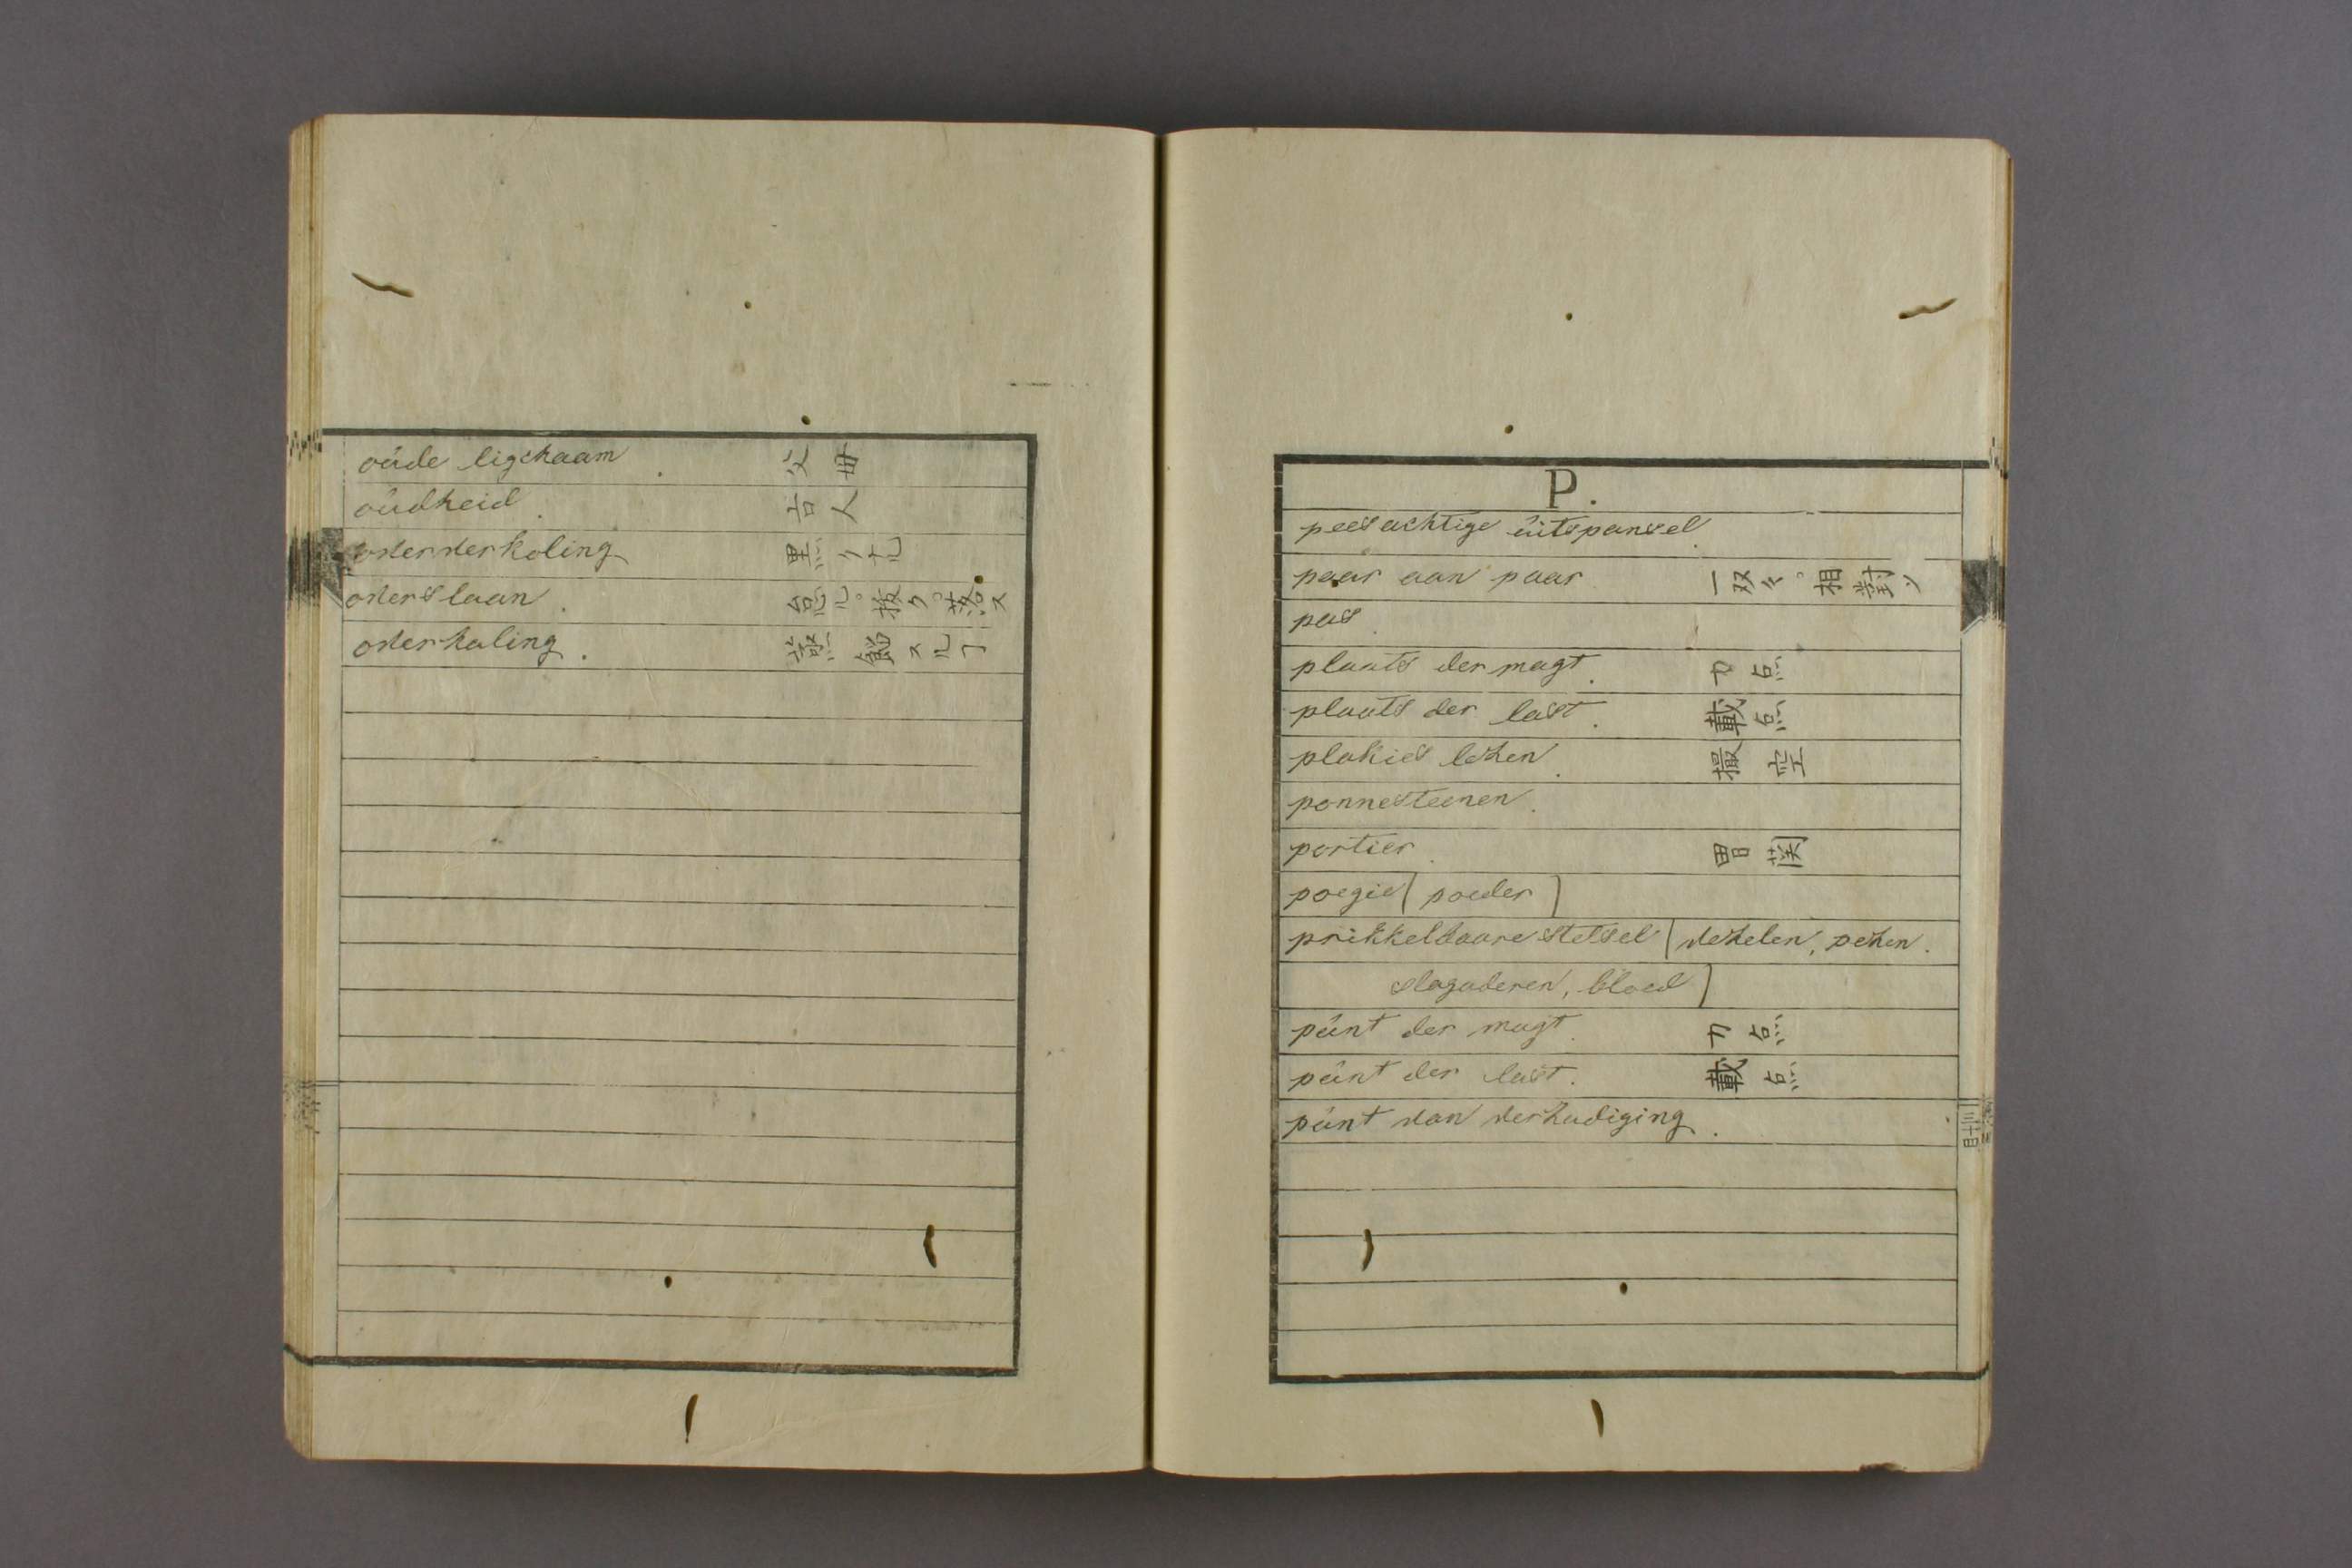 oúde ligchaam. 父母
oúdheid. 古人
oververkoling 黒クナル
overslaan. 怠ル。抜ク。落ス
overhaling. 蒸餾スルヿ
P.
peesachtige úitspansel.
paar aan paar 一双ヅヽ。相對ソ
pas.
plaats der magt. 力点
plaats der last. 載点
plakies lezen. 撮空
ponnesteenen.
portier. 胃関
poegie (poeder)
prikkelbaare stelsel (vezelen, pezen.
slagaderen, bloed)
púnt der magt. 力点
púnt der last. 載点
púnt van verhadiging.